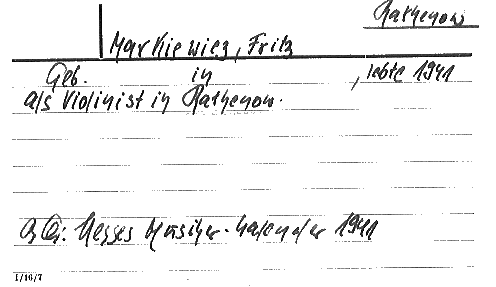 Rathenow
Markiewicz, Fritz
Geb. in , lebte 1941
als Violinist in Rathenow.
Qu: Hesses Musiker-Kalender 1941
I/16/7